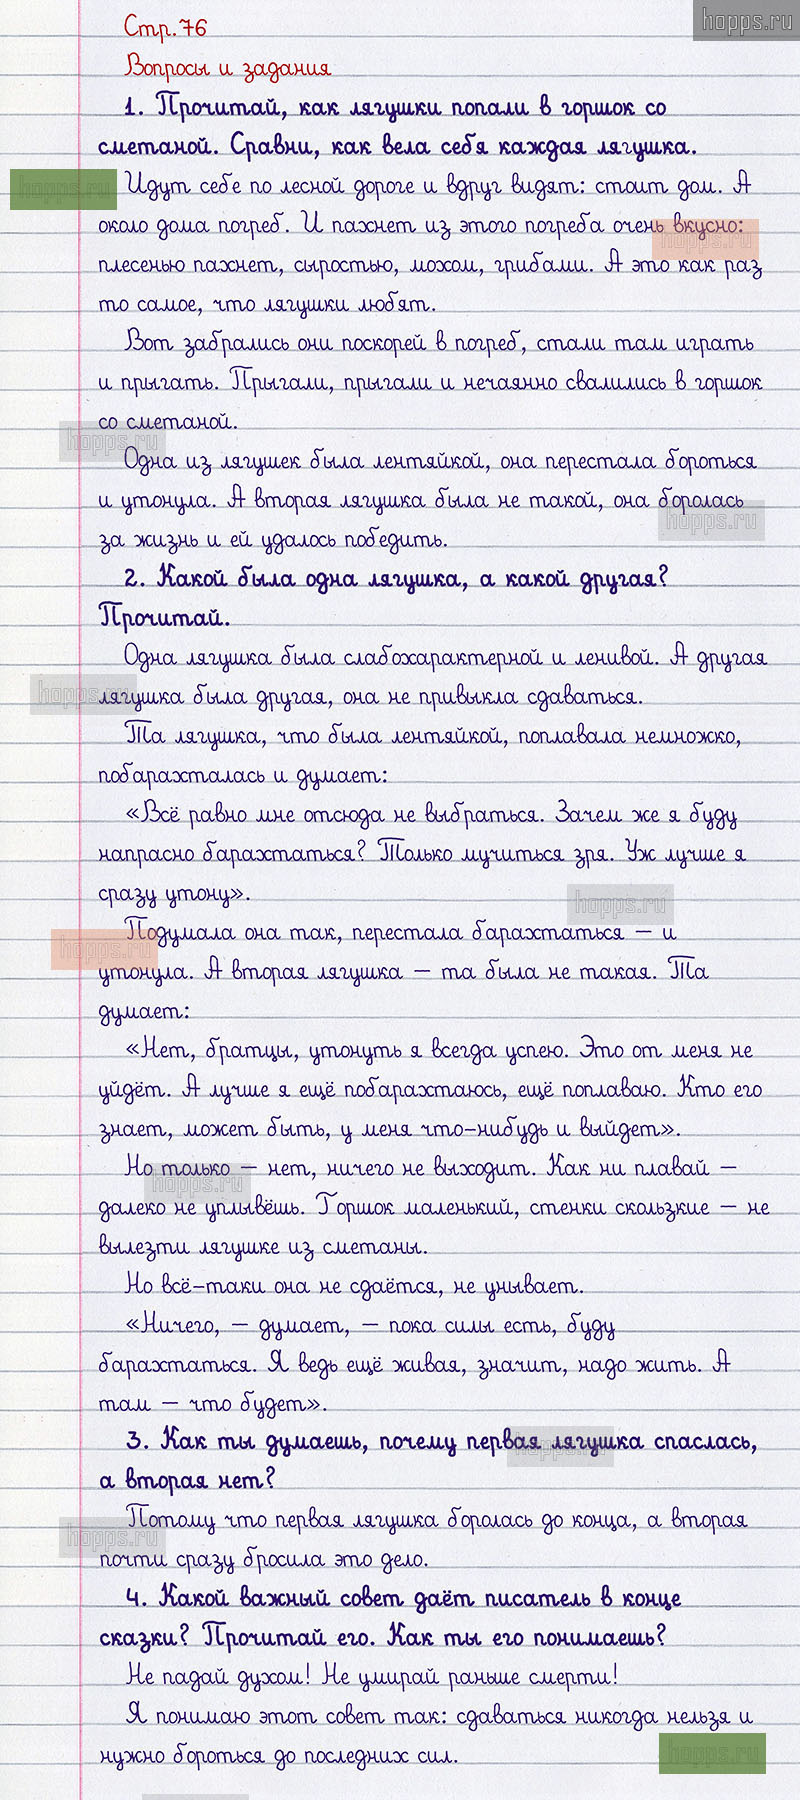 hopps.ru
Стр.76
Вопросы и задания
1. Прочитай, как лягушки попали в горшок со
сметаной. Сравни, как вела себя каждая лягушка.
hopps.ru
Идут себе по лесной дороге и вдруг видят: стоит дом. А
около дома погреб. И пахнет из этого погреба очень вкусно:
hopps.ru
плесенью пахнет, сыростью, мохом, грибами. А это как раз
то самое, что лягушки любят.
Вот забрались они поскорей в погреб, стали там играть
и прыгать. Прыгали, прыгали и нечаянно свалились в горшок
со сметаной.
hopps.ru
Одна из лягушек была лентяйкой, она перестала бороться
и утонула. А вторая лягушка была не такой, она боролась
hopps.ru
за жизнь и ей удалось победить.
2. Какой была одна лягушка, а какой другая?
Прочитай.
Одна лягушка была слабохарактерной и ленивой. А другая
hopps.ru
лягушка была другая, она не привыкла сдаваться.
Та лягушка, что была лентяйкой, поплавала немножко,
побарахталась и думает:
«Всё равно мне отсюда не выбраться. Зачем же я буду
напрасно барахтаться? Только мучиться зря. Уж лучше я
сразу утону».
hopps.ru
Подумала она так, перестала барахтаться – и
hopps.ru
утонула. А вторая лягушка – та была не такая. Та
думает:
«Нет, братцы, утонуть я всегда успею. Это от меня не
уйдёт. А лучше я ещё побарахтаюсь, ещё поплаваю. Кто его
знает, может быть, у меня что-нибудь и выйдет».
Но только – нет, ничего не выходит. Как ни плавай –
hopps.ru
далеко не уплывёшь. Горшок маленький, стенки скользкие – не
вылезти лягушке из сметаны.
Но всё-таки она не сдаётся, не унывает.
«Ничего, – думает, – пока силы есть, буду
барахтаться. Я ведь ещё живая, значит, надо жить. А
там – что будет».
3. Как ты думаешь, почему первая лягушка спаслась,
hopps.ru
а вторая нет?
Потому что первая лягушка боролась до конца, а вторая
hopps.ru
почти сразу бросила это дело.
4. Какой важный совет даёт писатель в конце
сказки? Прочитай его. Как ты его понимаешь?
Не падай духом! Не умирай раньше смерти!
Я понимаю этот совет так: сдаваться никогда нельзя и
нужно бороться до последних сил.
hopps.ru